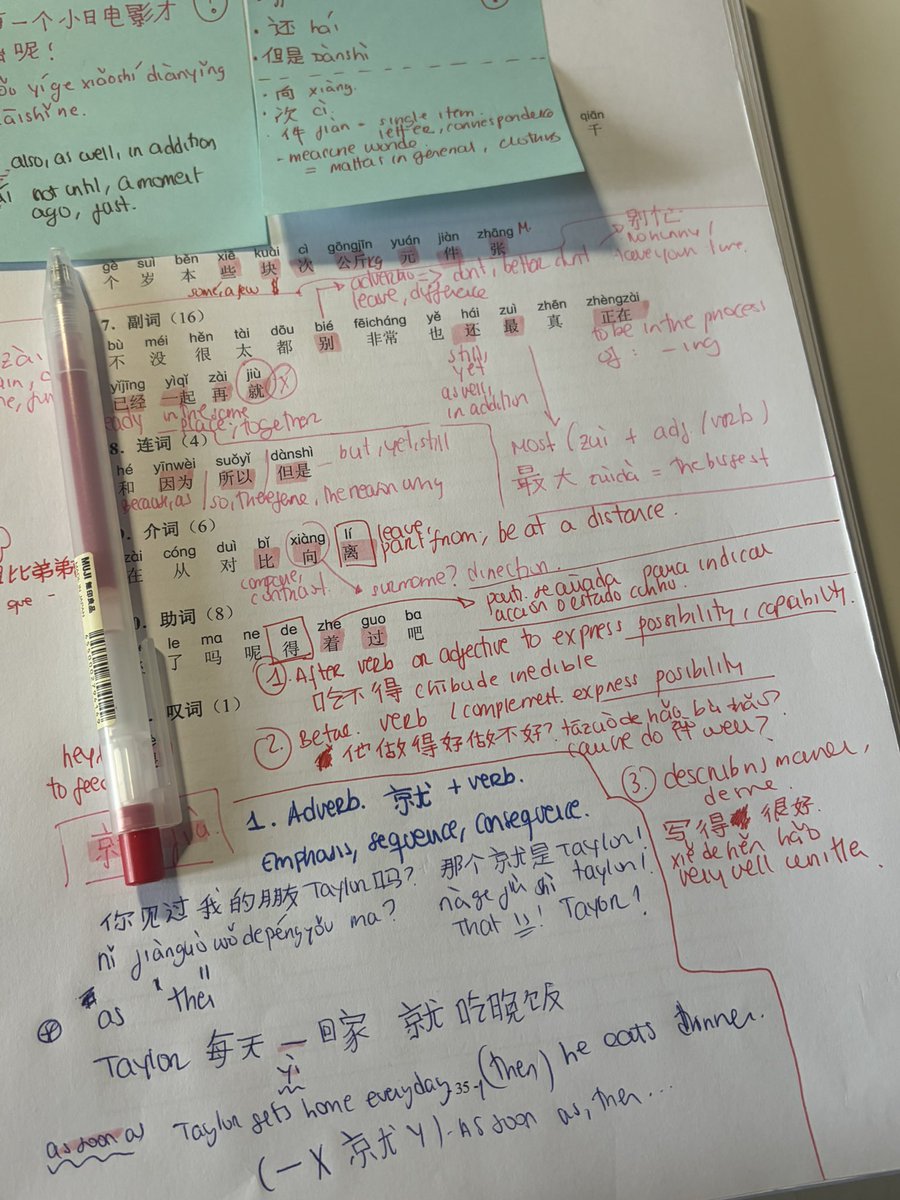 一个小日电影才
呢!
yíge xiǎoshí diànyǐng
also, as well, in addition
not until, a moment
ago, just.
· 还 hái
· 但是 Dànshì
· 向 xiàng.
· 次 cì.
· 件 jiàn - single item,
letter, correspondence
= mattas in general, customs
qiān
千
gè suì běn xiē kuài cì gōngjīn yuán jiàn zhāng M.
个 岁 本 些 块 次 公斤 kg 元 件 张
别忙
some, a few
=> dont, better dont
leave, difference
7. 副词（16）
bù méi hěn tài dōu bié fēicháng yě hái zuì zhēn zhèngzài
不 没 很 太 都 别 非常 也 还 最 真 正在
still,
yet
as well,
in addition
to be in the process
of: -ing
yǐjīng yìqǐ zài jiù
已经 一起 再 就
in the same
place; together
Most (zuì + adj / verb)
最大 zuìdà = the biggest
8. 连词（4）
hé yīnwèi suǒyǐ dànshì
和 因为 所以 但是
but, yet, still
Because, as / so, therefore, the reason why
介词（6）
zài cóng duì bǐ xiàng lí
在 从 对 比 向 离
leave,
part from; be at a distance.
compare,
contrast.
surname? direction.
比弟弟
que -
助词（8）
le ma ne de zhe guo ba
了 吗 呢 得 着 过 吧
para indicar
acción o estado
1. After verb or adjective to express possibility, capability.
吃不得 chibude inedible
叹词（1）
2. Betwe. verb / complement. express posibility
他做得好做不好? tāzuòde hǎo bù hǎo?
do well?
3. describins maner,
写得 很好.
xiěde hěn hǎo
very well
to
1. Adverb. 就 + verb.
emphasis, sequence, consequence.
你见过我的朋友Taylor吗? 那个就是Taylor!
nǐ jiànguò wǒ de péngyǒu ma? nàge jiù shì taylor!
That is! Taylor!
as "then"
Taylor 每天 一回家 就 吃晚饭
Yì
as soon as Taylor gets home everyday, (then) he eats dinner.
35
(一 X 就 Y) - As soon as, then...
MUJI 無印良品